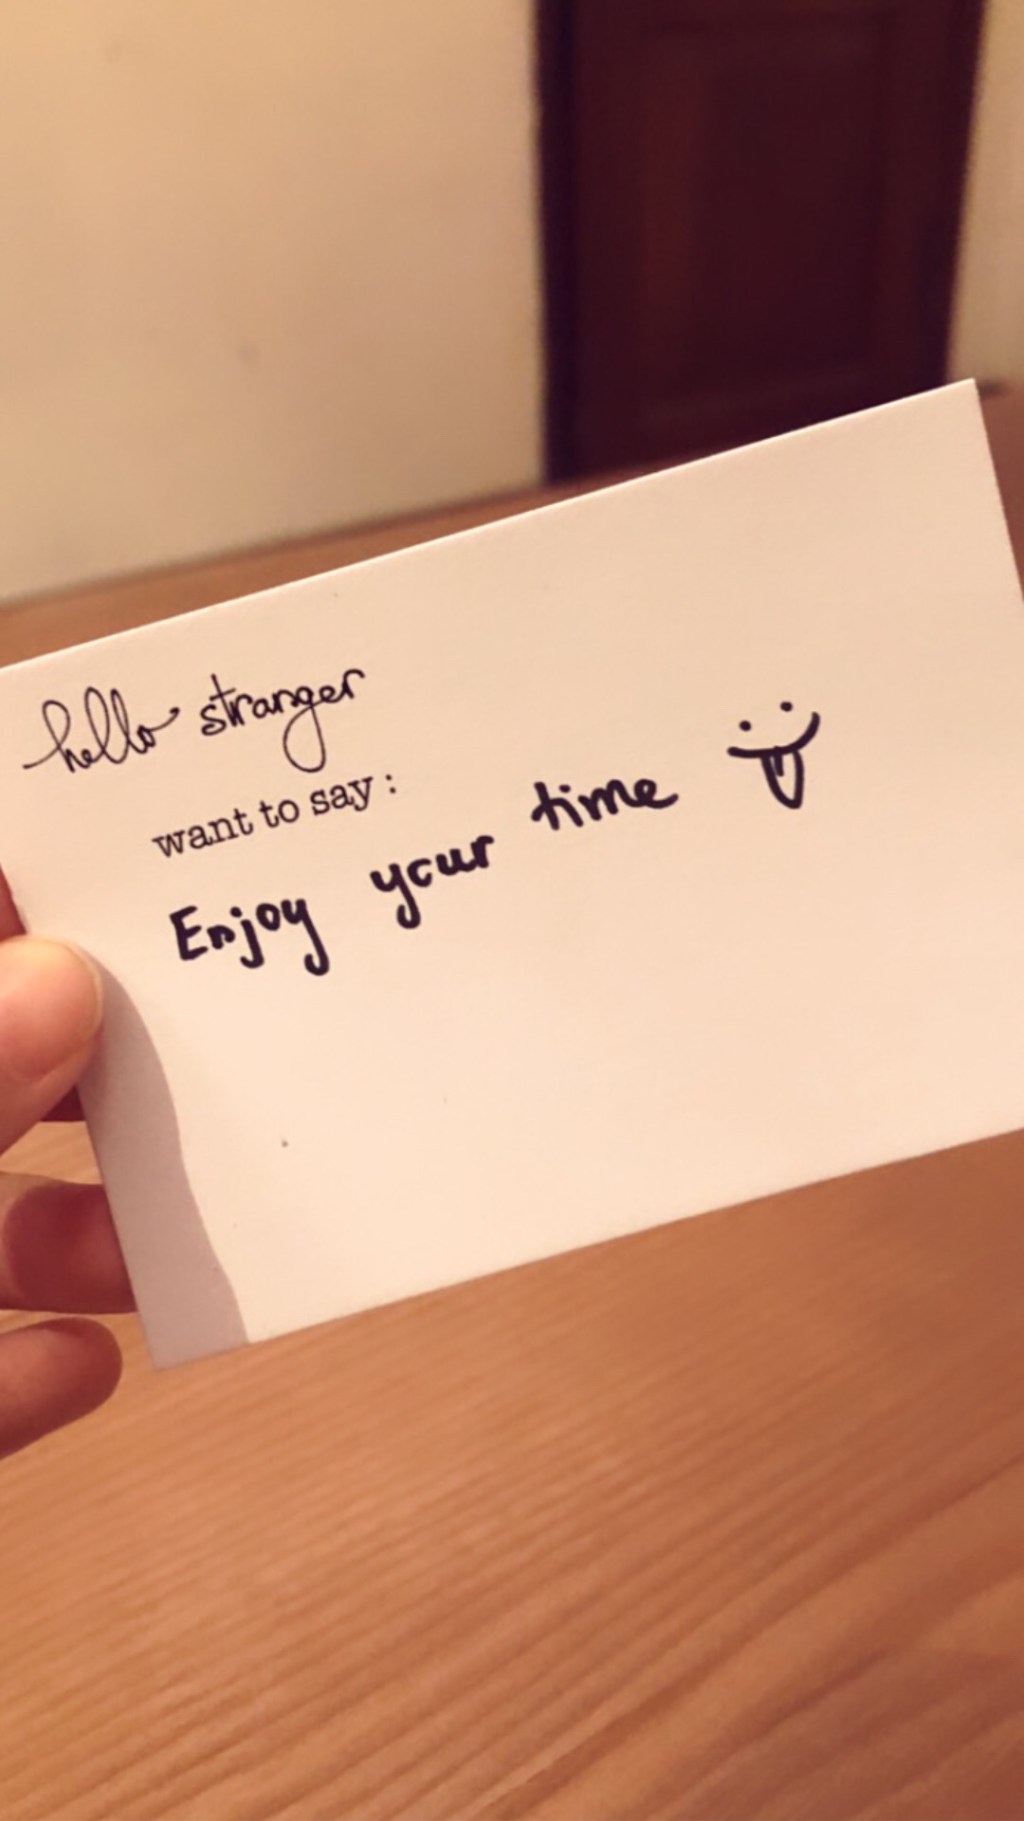 hello stranger
want to say :
Enjoy your time